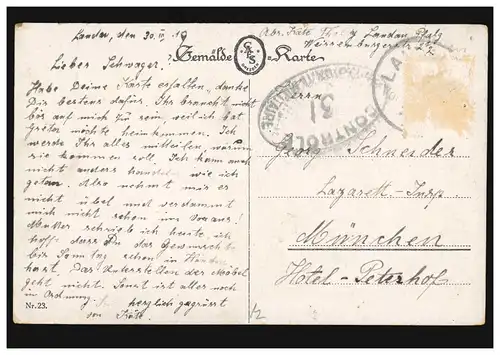 Landau, den 30. IV. 19
Gemälde Karte
Abs. Käte Landau Pfalz
Weissenburgerstr.
Lieber Schwager!
Habe Deine Karte erhalten, danke
Dir bestens dafür. Ihr braucht nicht
bös auf mich zu sein, weil ich bat
möchte heimkommen. Ich
werde Ihr alles mitteilen, warum
sie kommen soll. Ich kann auch
nicht anders handeln wie ich
getan. Also nehmt mir es
nicht übel und verdammt
mich nicht schon im voraus!
Mutter schrieb ich heute, ich
hoffe dass Du das Gewünschte
bis Sonntag schon in Händen
hast. Das Unterstellen der Möbel
geht nicht. Sonst ist alles noch
in Ordnung. herzlich gegrüsst
von Käte
Nr. 23.
CONTRÔLE
31
Herrn
Georg Schneider
Lazarett-Insp.
München
Hotel-Peterhof